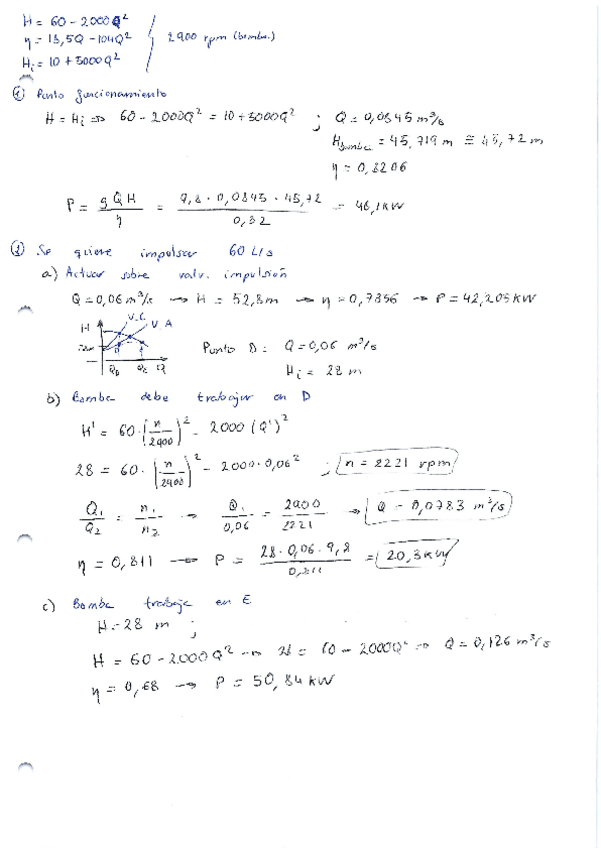 H = 60 - 2000Q²
η = 18,5Q - 104Q²
2900 rpm (bomba)
Hi = 10 + 5000Q²
① Punto funcionamiento
H = Hi => 60 - 2000Q² = 10 + 5000Q² ; Q = 0,0845 m³/s
Hbomba = 45,719 m ≅ 45,72 m
η = 0,8206
P = gQH / η = 9,8 · 0,0845 · 45,72 / 0,82 = 46,1 KW
② Se quiere impulsar 60 L/s
a) Actuar sobre valv. impulsión
Q = 0,06 m³/s → H = 52,8 m → η = 0,7356 → P = 42,205 KW
H V.C. V.A
Punto D: Q = 0,06 m³/s
Hi = 28 m
b) Bomba debe trabajar en D
H' = 60 · (n/2900)² - 2000 (Q')²
28 = 60 · (n/2900)² - 2000 · 0,06² ; n = 2221 rpm
Q1/Q2 = n1/n2 → Q1/0,06 = 2900/2221 → Q = 0,0783 m³/s
η = 0,811 → P = 28 · 0,06 · 9,8 / 0,811 = 20,3 KW
c) Bomba trabaja en E
H = 28 m ;
H = 60 - 2000Q² → 28 = 60 - 2000Q² => Q = 0,126 m³/s
η = 0,68 → P = 50,84 KW